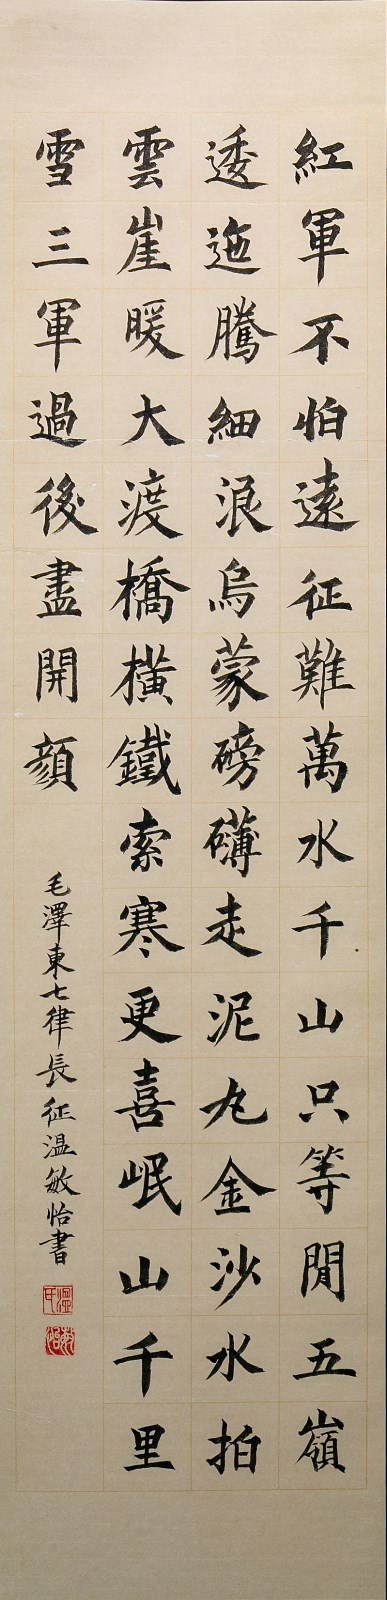 紅軍不怕遠征難萬水千山只等閒五嶺
逶迤騰細浪烏蒙磅礴走泥丸金沙水拍
雲崖暖大渡橋橫鐵索寒更喜岷山千里
雪三軍過後盡開顏
毛澤東七律長征溫敏怡書